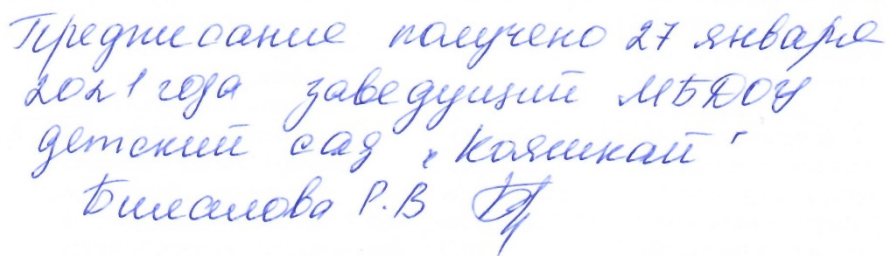 Предписание получено 27 января
2021 года заведующий МБДОУ
детский сад "Кояшкай"
Билалова Р.В